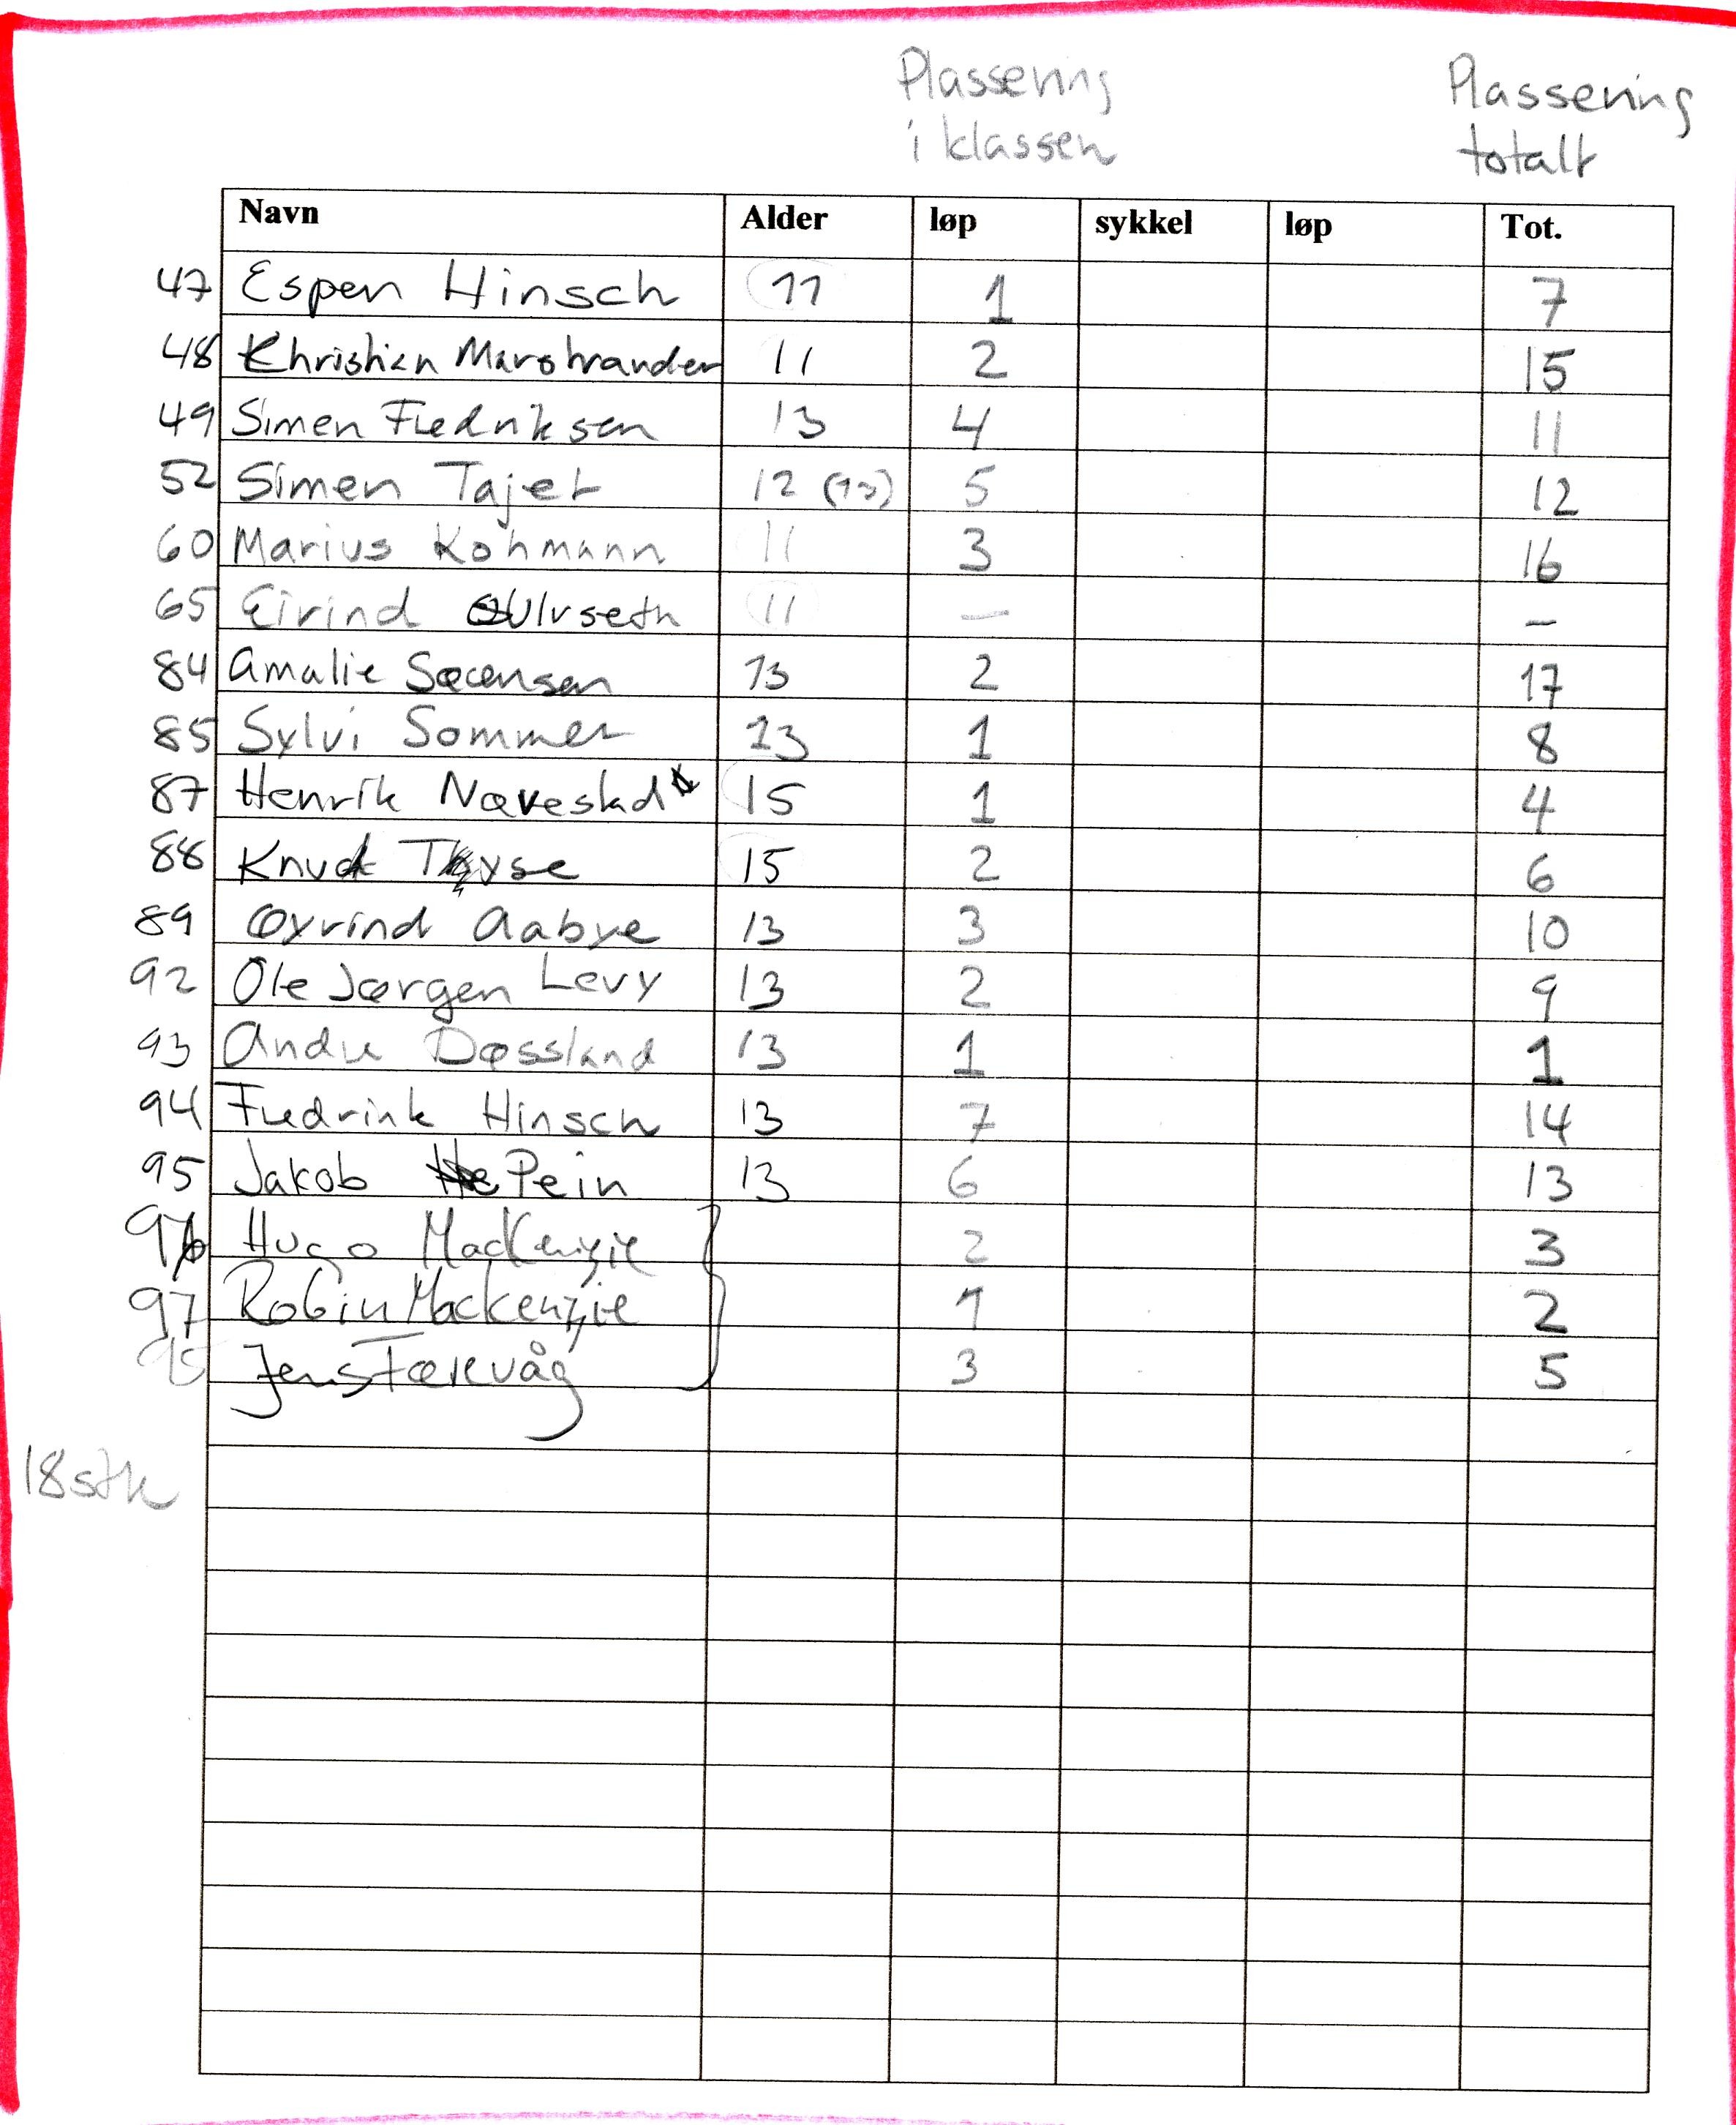 Plassering Plassering
i klassen totalt
Navn Alder løp sykkel løp Tot.
47 Espen Hinsch 11 1 7
48 Khristian 11 2 15
49 Simen Fredriksen 13 4 11
52 Simen Tajet 12 (13) 5 12
60 Marius Kohmann 11 3 16
65 Eirind Ulvseth 11 – –
84 Amalie Sørensen 13 2 17
85 Sylvi Sommer 13 1 8
87 Henrik 15 1 4
88 Knud Tyse 15 2 6
89 Øyvind Aabye 13 3 10
92 Ole Jørgen Levy 13 2 9
93 Andre Døssland 13 1 1
94 Fredrink Hinsch 13 7 14
95 Jakob Pein 13 6 13
96 Hugo MacKenzie 2 3
97 Robin Mackenzie 1 2
Jens Færevåg 3 5
18 stk